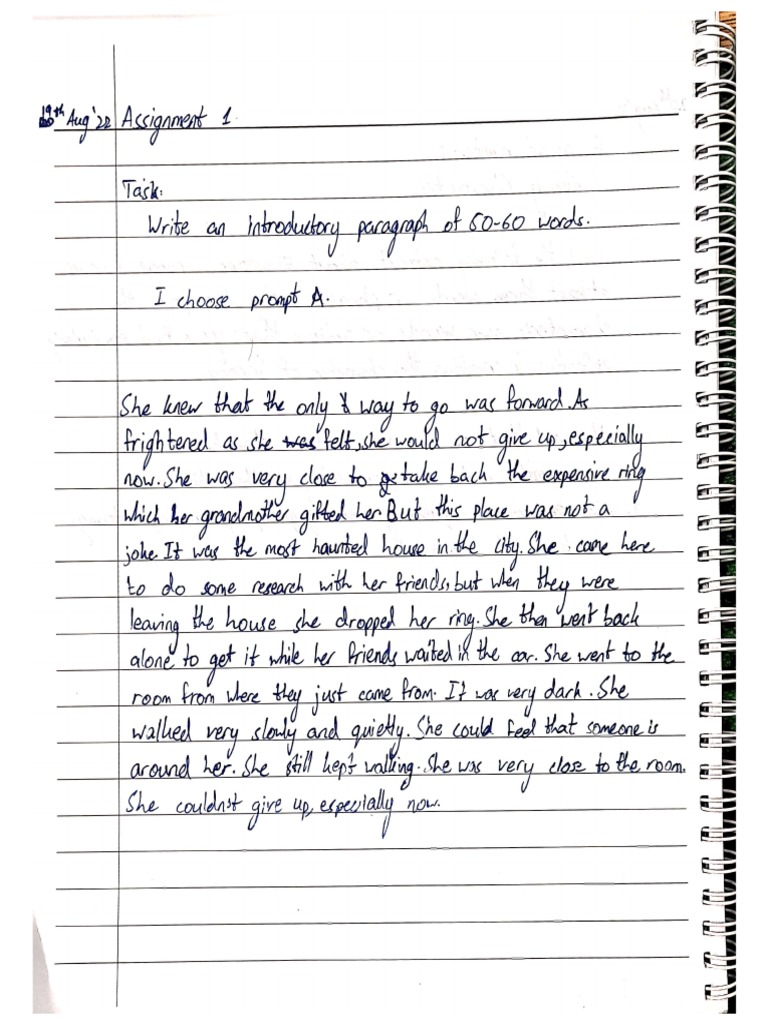 19th Aug '22 Assignment 1
Task:
Write an introductory paragraph of 50-60 words.
I choose prompt A.
She knew that the only way to go was forward. As
frightened as she was felt, she would not give up, especially
now. She was very close to take back the expensive ring
which her grandmother gifted her. But this place was not a
joke. It was the most haunted house in the city. She came here
to do some research with her friends, but when they were
leaving the house she dropped her ring. She then went back
alone to get it while her friends waited in the car. She went to the
room from where they just came from. It was very dark. She
walked very slowly and quietly. She could feel that someone is
around her. She still kept walking. She was very close to the room.
She couldn't give up, especially now.